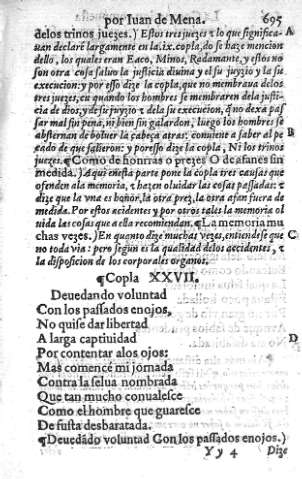 por Iuan de Mena. 695
delos trinos juezes.) Estos tres juezes τ lo que significa- A
uan declare largamente en la .ix. copla, do se haze mencion
dello, los quales eran Eaco, Minos, Radamante, y estos no
son otra cosa saluo la justicia diuina y el su juyzio y la su
execucion: y por esso dize la copla, que no membraua delos
tres juezes, ca quando los hombres se membraren dela justi-
cia de dios, y de su juyzio τ dela su execucion, q̃ no dexa pas
sar mal sin pena, ni bien sin galardon, luego los hombres se
absternan de boluer la cabeça atras: conuiene a saber al pe B
cado de que salieron: y por esso dize la copla, Ni los trinos
juezes. ¶Como de honrras o prezes O de afanes sin
medida.) Aqui en esta parte pone la copla tres causas que
ofenden ala memoria, τ hazen oluidar las cosas passadas: τ
dize que la vna es honor, la otra prez, la otra afan fuera de
medida. Por estos acidentes y por otros tales la memoria ol
uida las cosas que a ella recomiendan. ¶La memoria mu
chas vezes.) En quanto dize muchas vezes, entiendese que C
no toda via: pero segun es la qualidad delos accidentes, τ
la disposicion de los corporales organos.
¶Copla XXVII.
Deuedando voluntad
Con los passados enojos,
No quise dar libertad
A larga captiuidad D
Por contentar alos ojos:
Mas comencé mi jornada
Contra la selua nombrada
Que tan mucho conualesce
Como el hombre que guaresce
De fusta desbaratada.
¶Deuedãdo voluntad Con los passados enojos.)
Y y 4 Dize